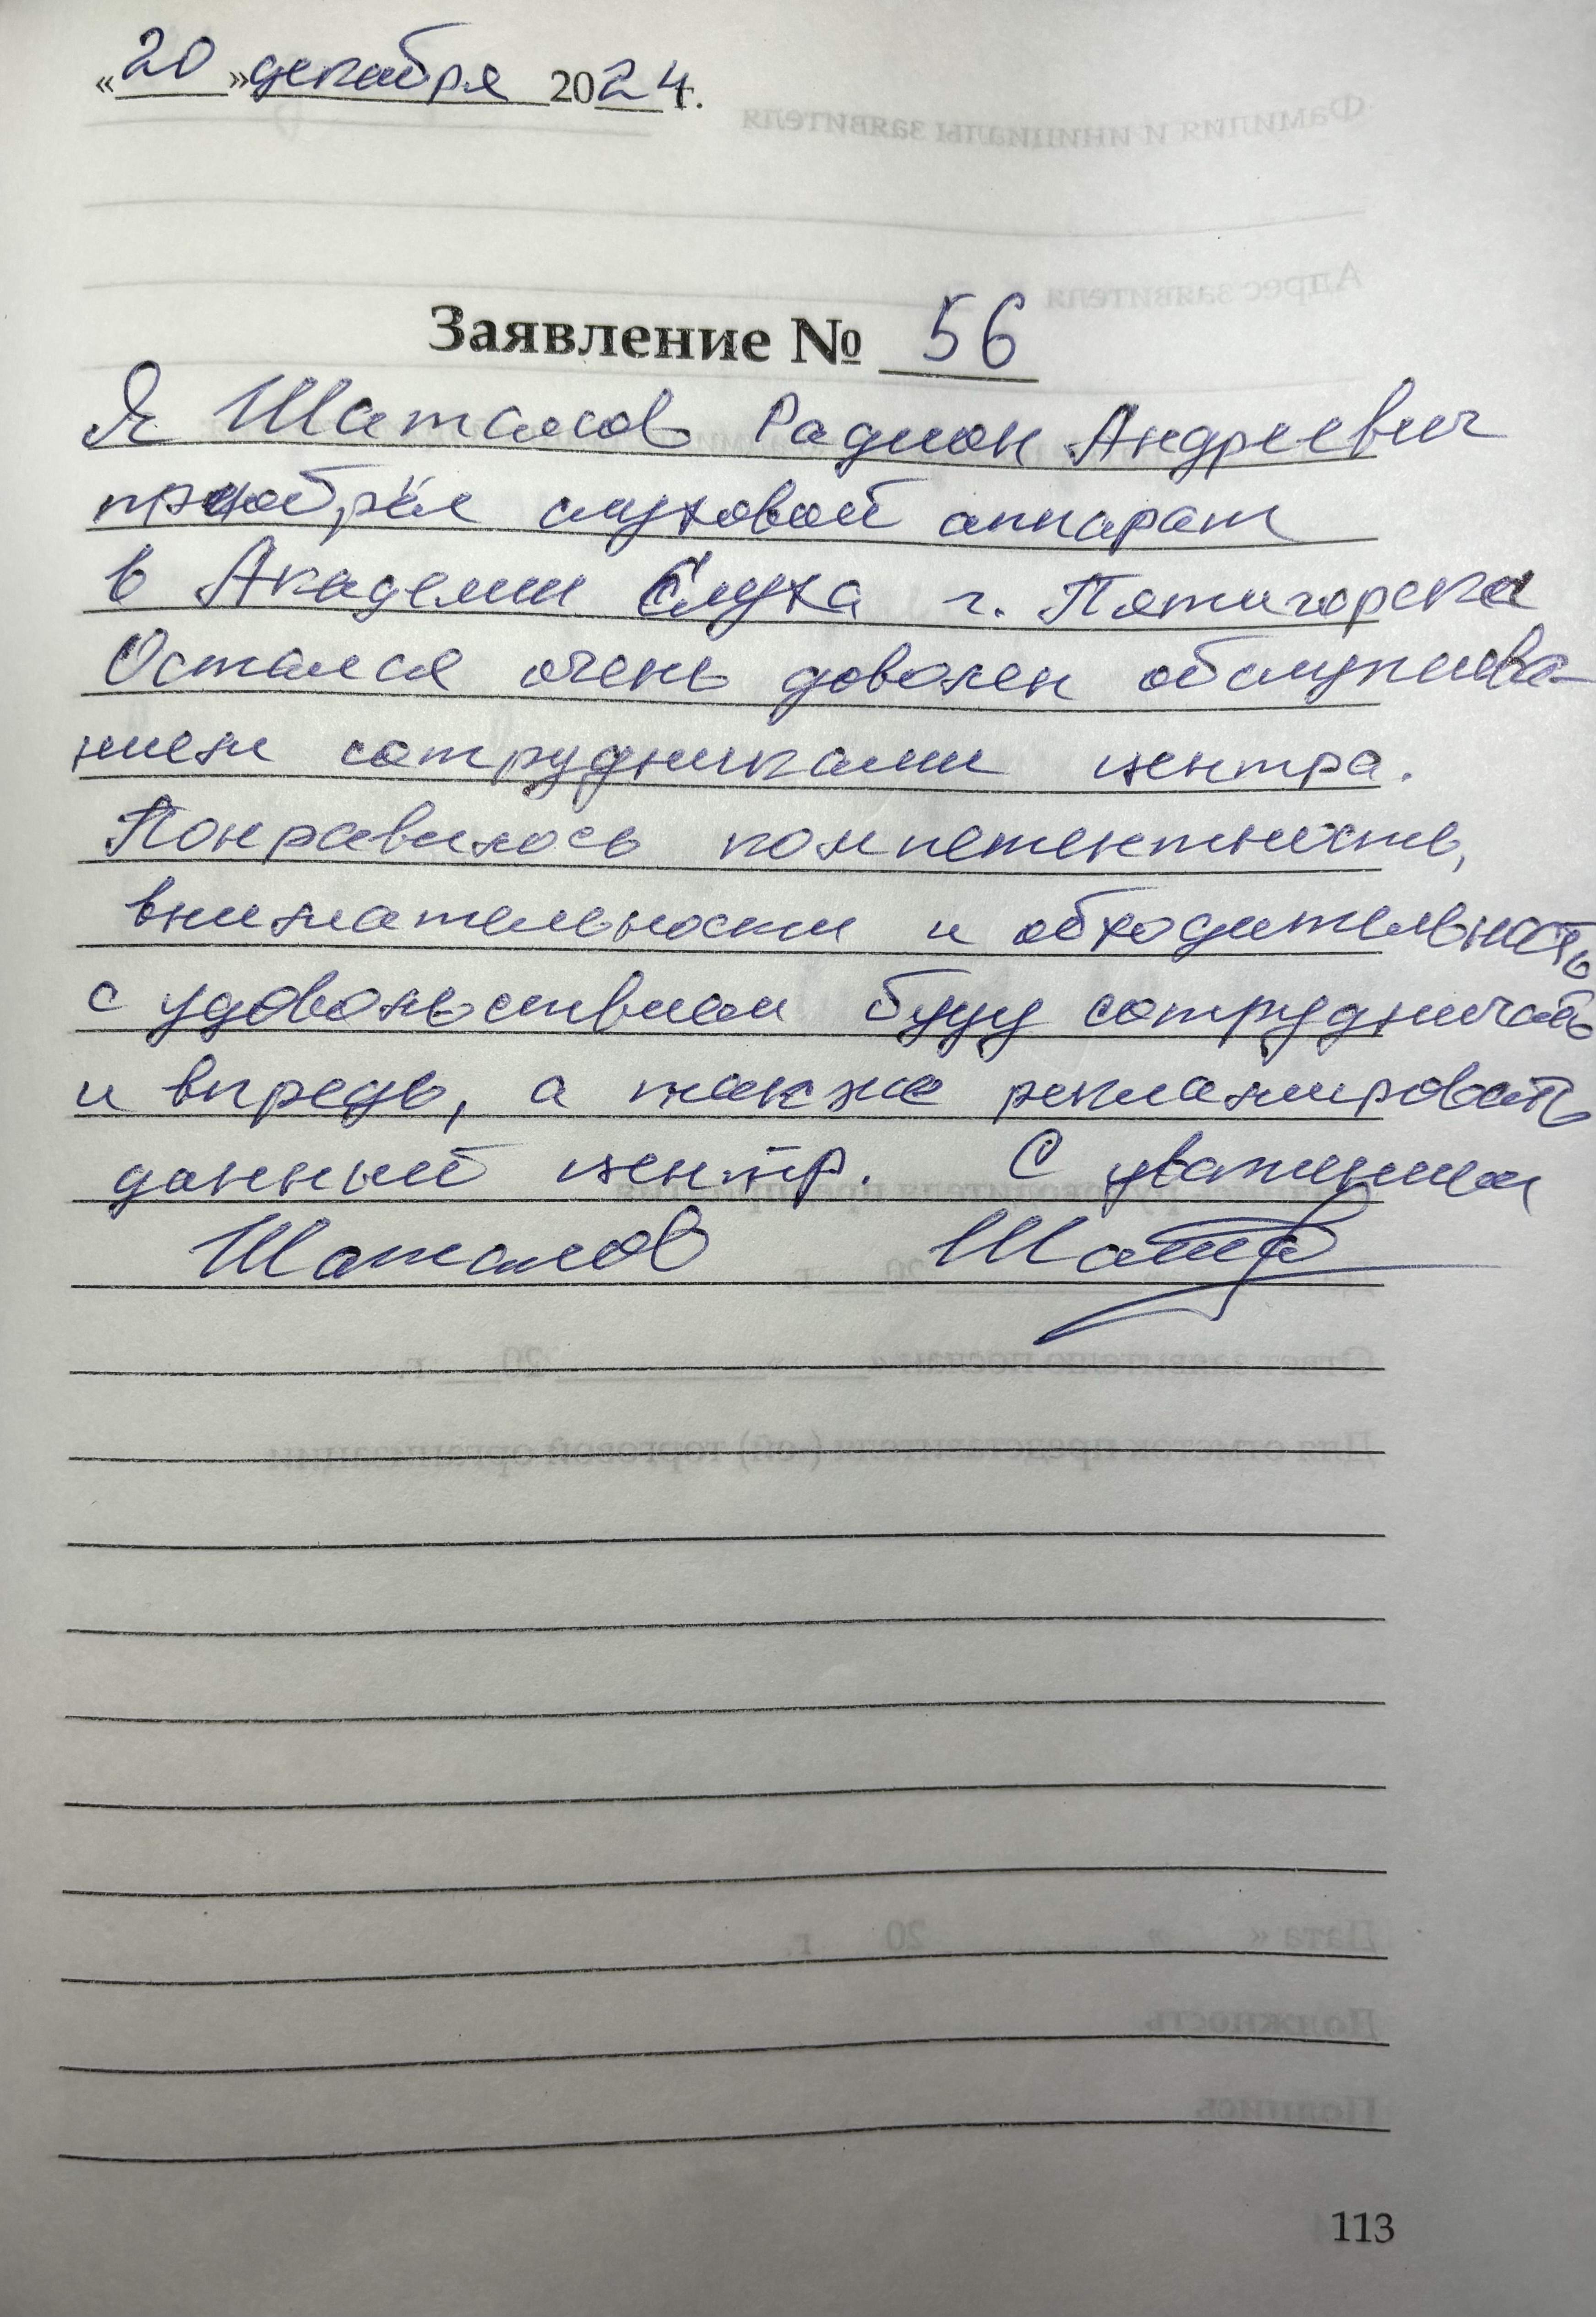 «20» декабря 2024г.
Заявление № 56
Я Шаталов Радион Андреевич
приобрёл слуховой аппарат
в Академии Слуха г. Пятигорска
Остался очень доволен обслужива-
нием сотрудниками центра.
Понравилось компетентность,
внимательности и обходительность
с удовольствием буду сотрудничать
и впредь, а также рекламировать
данный центр. С уважением
Шаталов
113